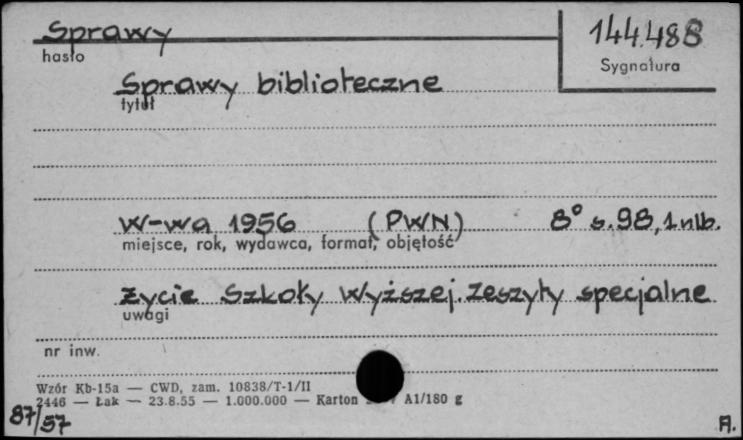 Sprawy 144.488
hasło Sygnatura
Sprawy biblioteczne
tytuł
W-wa 1956 (PWN) 8° s. 98, 1 nlb.
miejsce, rok, wydawca, format, objętość
Życie Szkoły Wyższej. Zeszyty specjalne
uwagi
nr inw.
Wzór Kb-15a — CWD, zam. 10838/T-1/II
2446 — Łak — 23.8.55 — 1.000.000 — Karton A1/180 g
87/57 A.